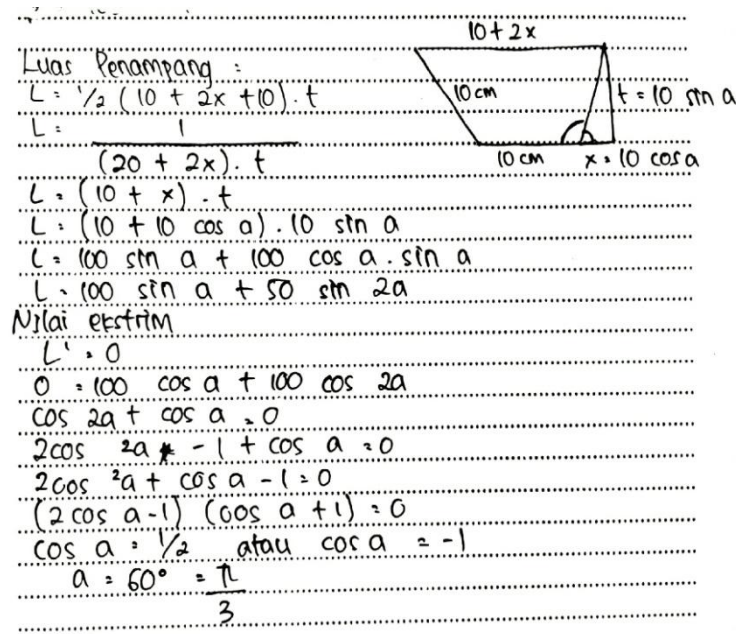 10 + 2x
Luas Penampang :
L = 1/2 (10 + 2x + 10) . t
10 cm
t = 10 sin a
L = 1
(20 + 2x) . t
10 cm x = 10 cos a
L = (10 + x) . t
L = (10 + 10 cos a) . 10 sin a
L = 100 sin a + 100 cos a . sin a
L = 100 sin a + 50 sin 2a
Nilai ekstrim
L' = 0
0 = 100 cos a + 100 cos 2a
cos 2a + cos a = 0
2cos 2a - 1 + cos a = 0
2cos ²a + cos a - 1 = 0
(2 cos a - 1) (cos a + 1) = 0
cos a = 1/2 atau cos a = -1
a = 60° = π
3